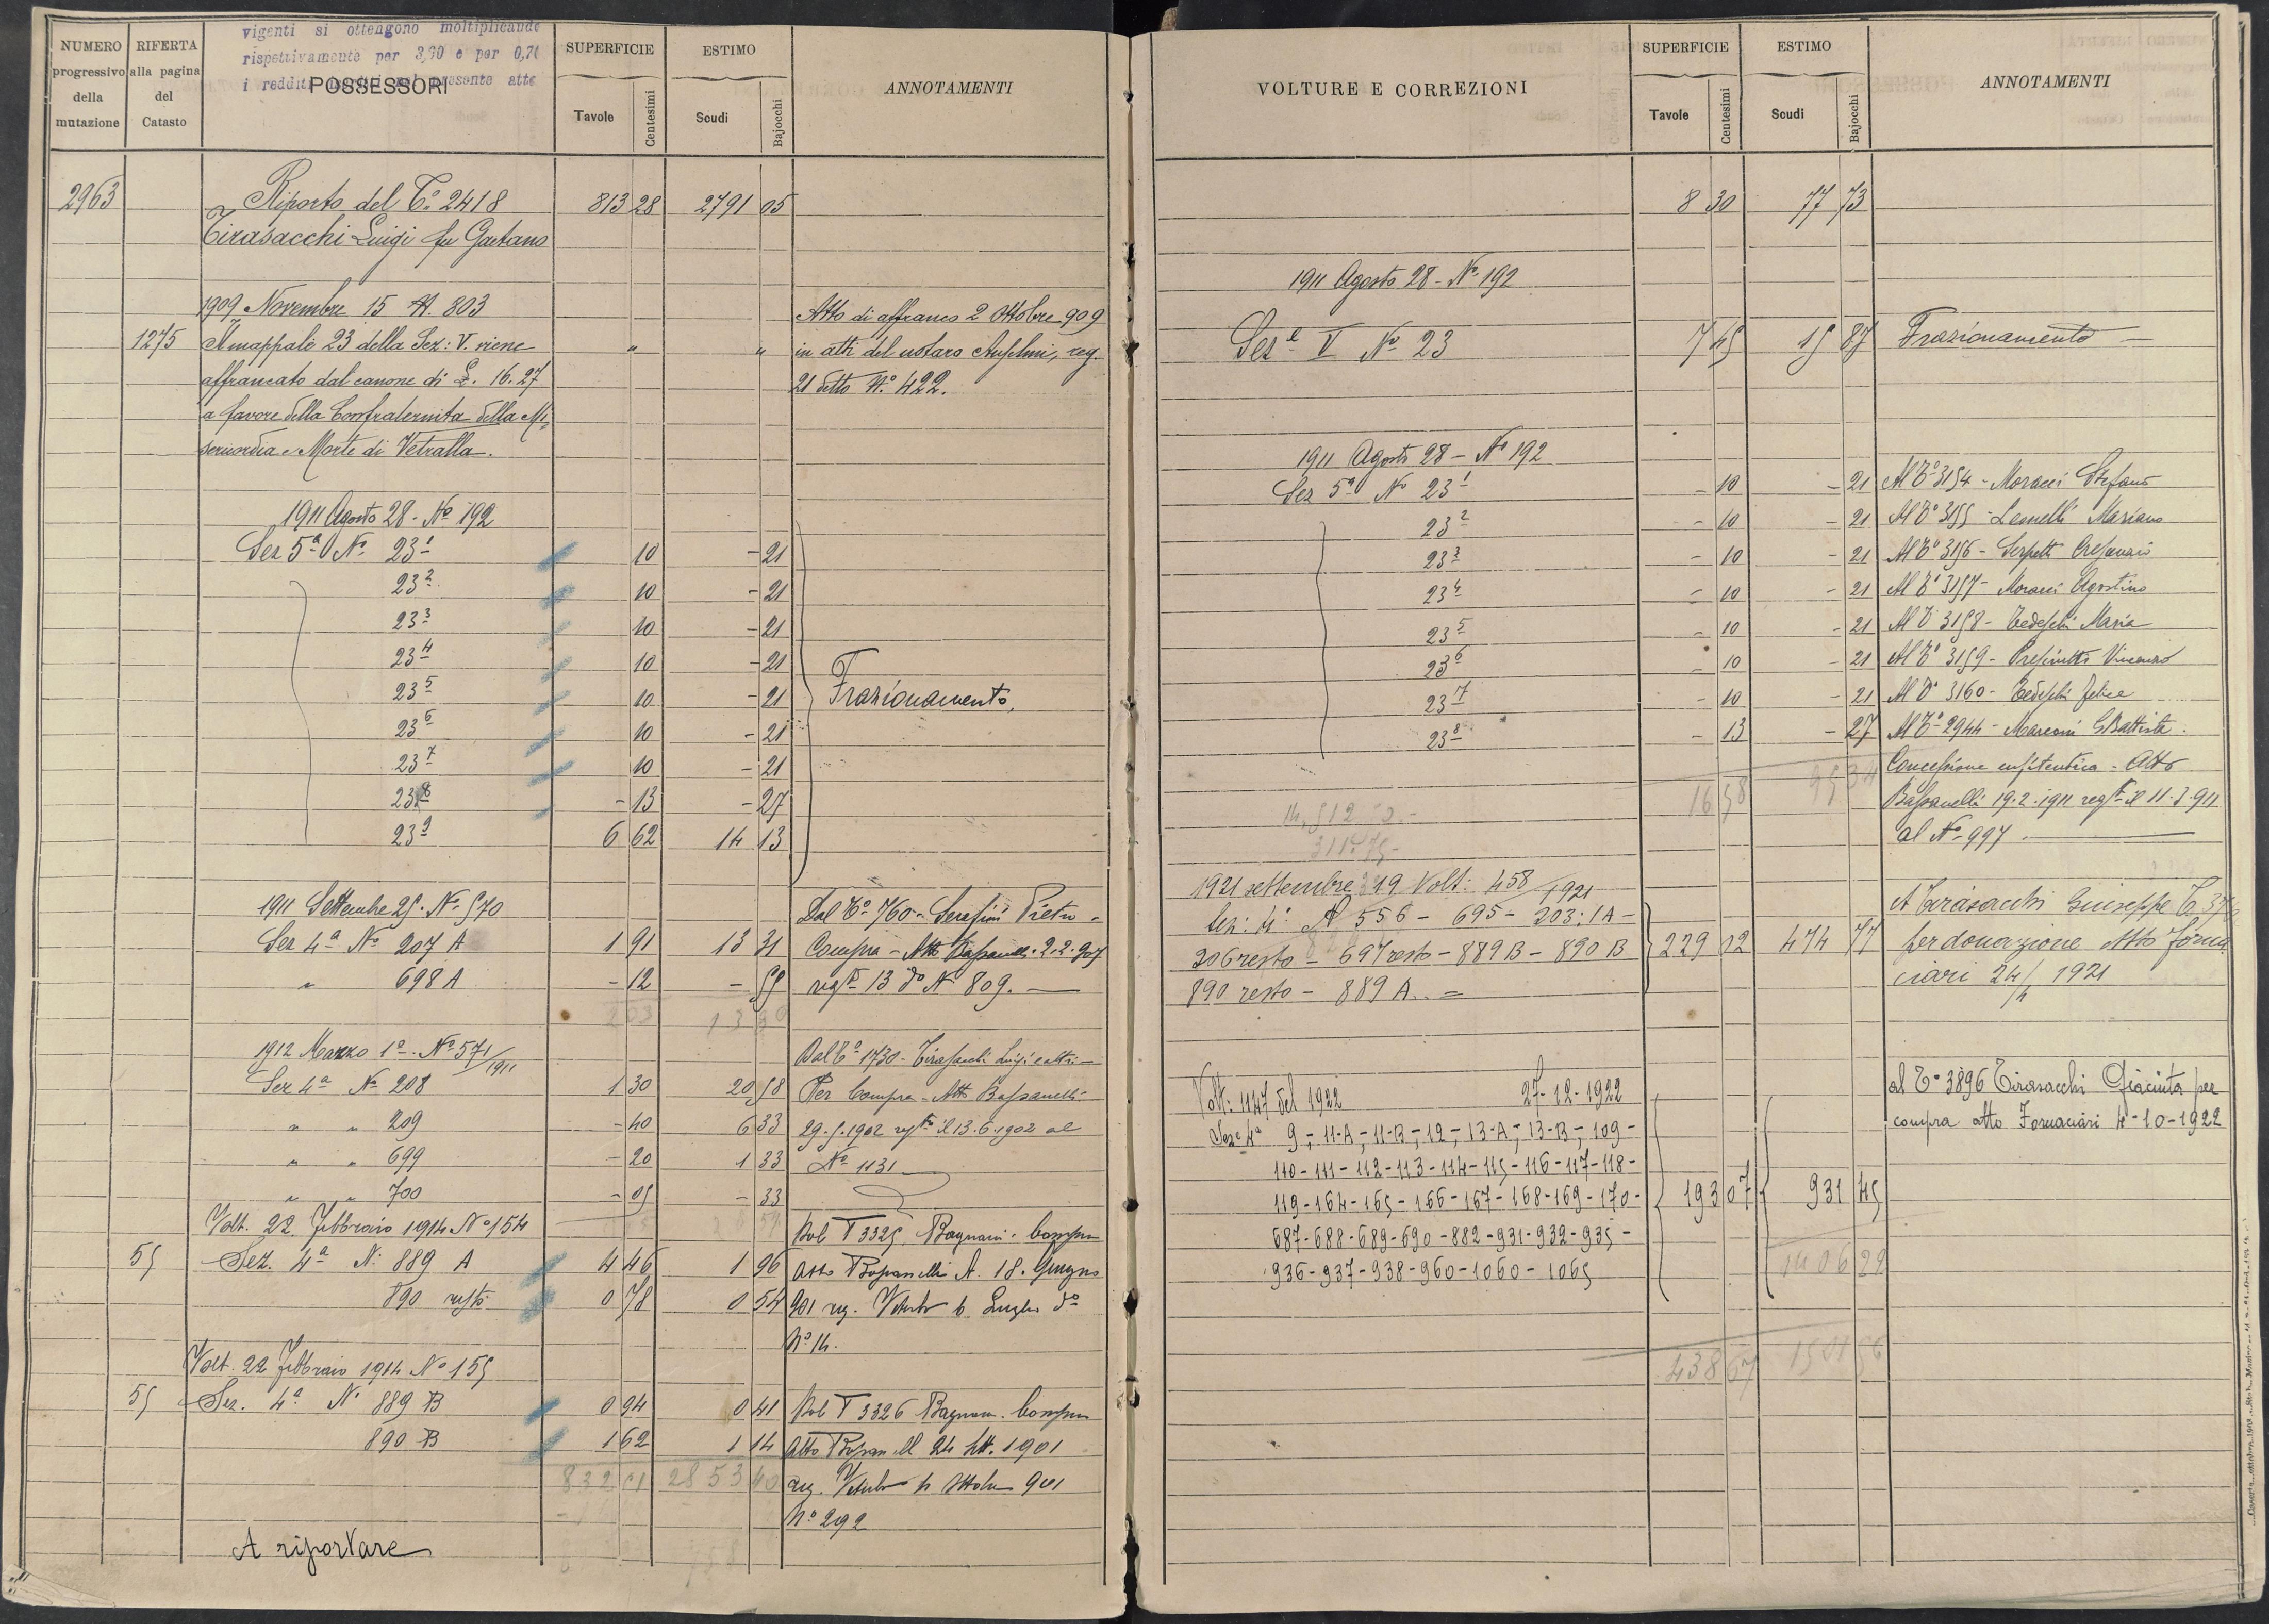 vigenti si ottengono moltiplicando
rispettivamente per 3,90 e per 0,70
i redditi presente atto
NUMERO progressivo della mutazione
RIFERTA alla pagina del Catasto
POSSESSORI
SUPERFICIE
Tavole
Centesimi
ESTIMO
Scudi
Bajocchi
ANNOTAMENTI
2963 Riporto del T.º 2418 813 28 2791 05
Tirasacchi Luigi fu Gaetano
1909 Novembre 15 N. 803 Atto di affranco 2 Ottobre 909
1275 Il mappale 23 della Sez: V. viene " " in atti del notaro Anselmi, reg.
affrancato dal canone di £. 16.27 21 detto N.º 422.
a favore della Confraternita della Mi,
sericordia e Morte di Vetralla.
1911 Agosto 28 - Nº 192
Sez 5ª Nº 23¹ 10 - 21
23² 10 - 21
23³ 10 - 21
23⁴ 10 - 21
23⁵ 10 - 21 Frazionamento,
23⁶ 10 - 21
23⁷ 10 - 21
23⁸ - 13 - 27
23⁹ 6 62 14 13
1911 Settembre 25 - Nº 570 Dal Tº 760 - Serafini Pietro -
Sez 4ª Nº 207 A 1 91 13 31 Compra - Atto 2.2.907
" 698 A - 12 - 59 regto 13 dº Nº 809. —
203 13 90
1912 Marzo 1º - Nº 571/1911 Dal Tº 1730 - Tirasacchi Luigi e altri -
Sez 4ª Nº 208 1 30 20 58 Per Compra - Atto Bassanelli
" " 209 - 40 6 33 29.5.1902 regto il 13.6.1902 al
" " 699 - 20 1 33 Nº 1131
" " 700 - 05 - 33
Volt. 22 Febbraio 1914 Nº 154 Dal T 3325 Bagnani. Compra
55 Sez. 4ª N. 889 A 4 46 1 96 Atto Bassanelli A. 18. Giugno
890 resto 0 78 0 54 901 reg. Viterbo 6 Luglio dº
Nº 14.
Volt. 22 Febbraio 1914 Nº 155
55 Sez. 4ª N. 889 B 0 94 0 41 Dal T 3326 Bagnani. Compra
890 B 1 62 1 14 Atto Bassanelli 24 Sett. 1901
832 01 2853 40 reg. Viterbo Ottobre 901
Nº 292
A riportare
VOLTURE E CORREZIONI
SUPERFICIE
Tavole
Centesimi
ESTIMO
Scudi
Bajocchi
ANNOTAMENTI
8 30 77 73
1911 Agosto 28 - Nº 192
Sez.e V Nº 23 7 45 15 87 Frazionamento —
1911 Agosto 28 - Nº 192
Sez 5ª Nº 23¹ - 10 - 21 Al Tº 3154 - Moracci Stefano
23² - 10 - 21 Al Tº 3155 - Mariano
23³ - 10 - 21 Al Tº 3156 -
23⁴ - 10 - 21 Al Tº 3157 - Moracci Agostino
23⁵ - 10 - 21 Al Tº 3158 - Tedeschi Maria
23⁶ - 10 - 21 Al Tº 3159 - Vincenzo
23⁷ - 10 - 21 Al Tº 3160 - Tedeschi Felice
23⁸ - 13 - 27 Al Tº 2944 - Marconi GBattista.
Concessione enfiteutica - Atto
16 58 95 34 Bassanelli 19.2.1911 regto il 11.3.911
al Nº 997 —
1921 settembre 19 Volt: 458/1921 A Tirasacchi Giuseppe
Sez: 4ª N 556 - 695 - 203: 1A -
206 resto - 697 resto - 889 B - 890 B 229 02 474 77 per donazione Atto Forna
890 resto - 889 A. = ciari 24/4 1921
Volt: 1147 del 1922 27-12-1922 al Tº 3896 Tirasacchi Giacinta per
Sez.e 4ª 9 - 11-A - 11-B - 12 - 13-A - 13-B - 109 - compra atto Fornaciari 4-10-1922
110 - 111 - 112 - 113 - 114 - 115 - 116 - 117 - 118 -
119 - 164 - 165 - 166 - 167 - 168 - 169 - 170 - 193 07 931 45
687 - 688 - 689 - 690 - 882 - 931 - 932 - 935 -
936 - 937 - 938 - 960 - 1060 - 1065 1406 22
438 67 1501 56